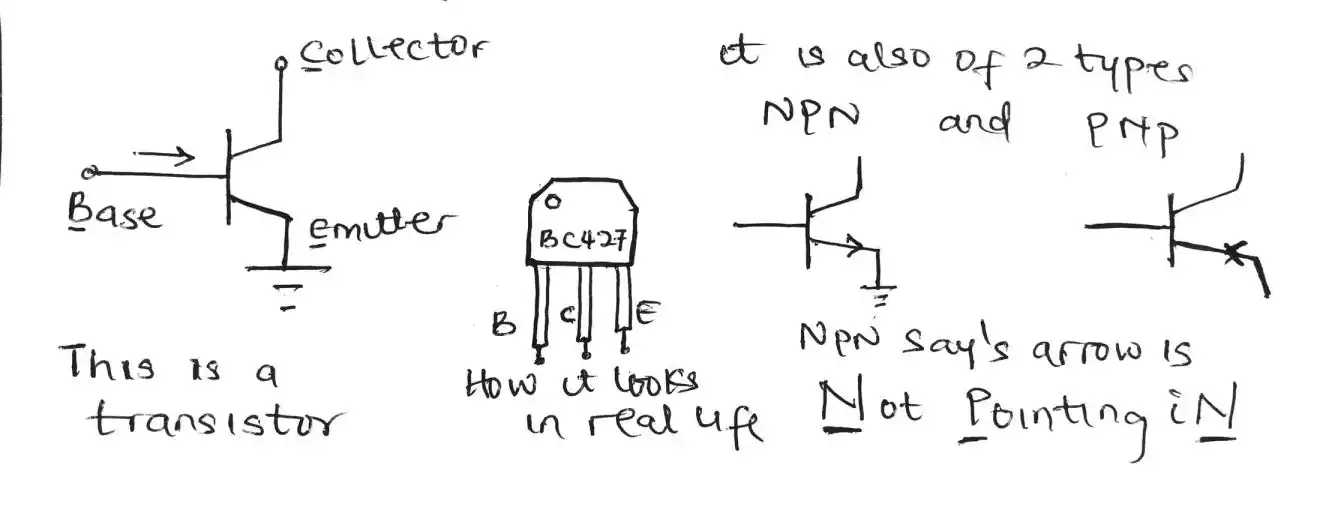 Collector
Base
Emitter
This is a
transistor
BC427
B C E
How it looks
in real life
it is also of 2 types
NPN and PNP
NPN say's arrow is
Not Pointing iN